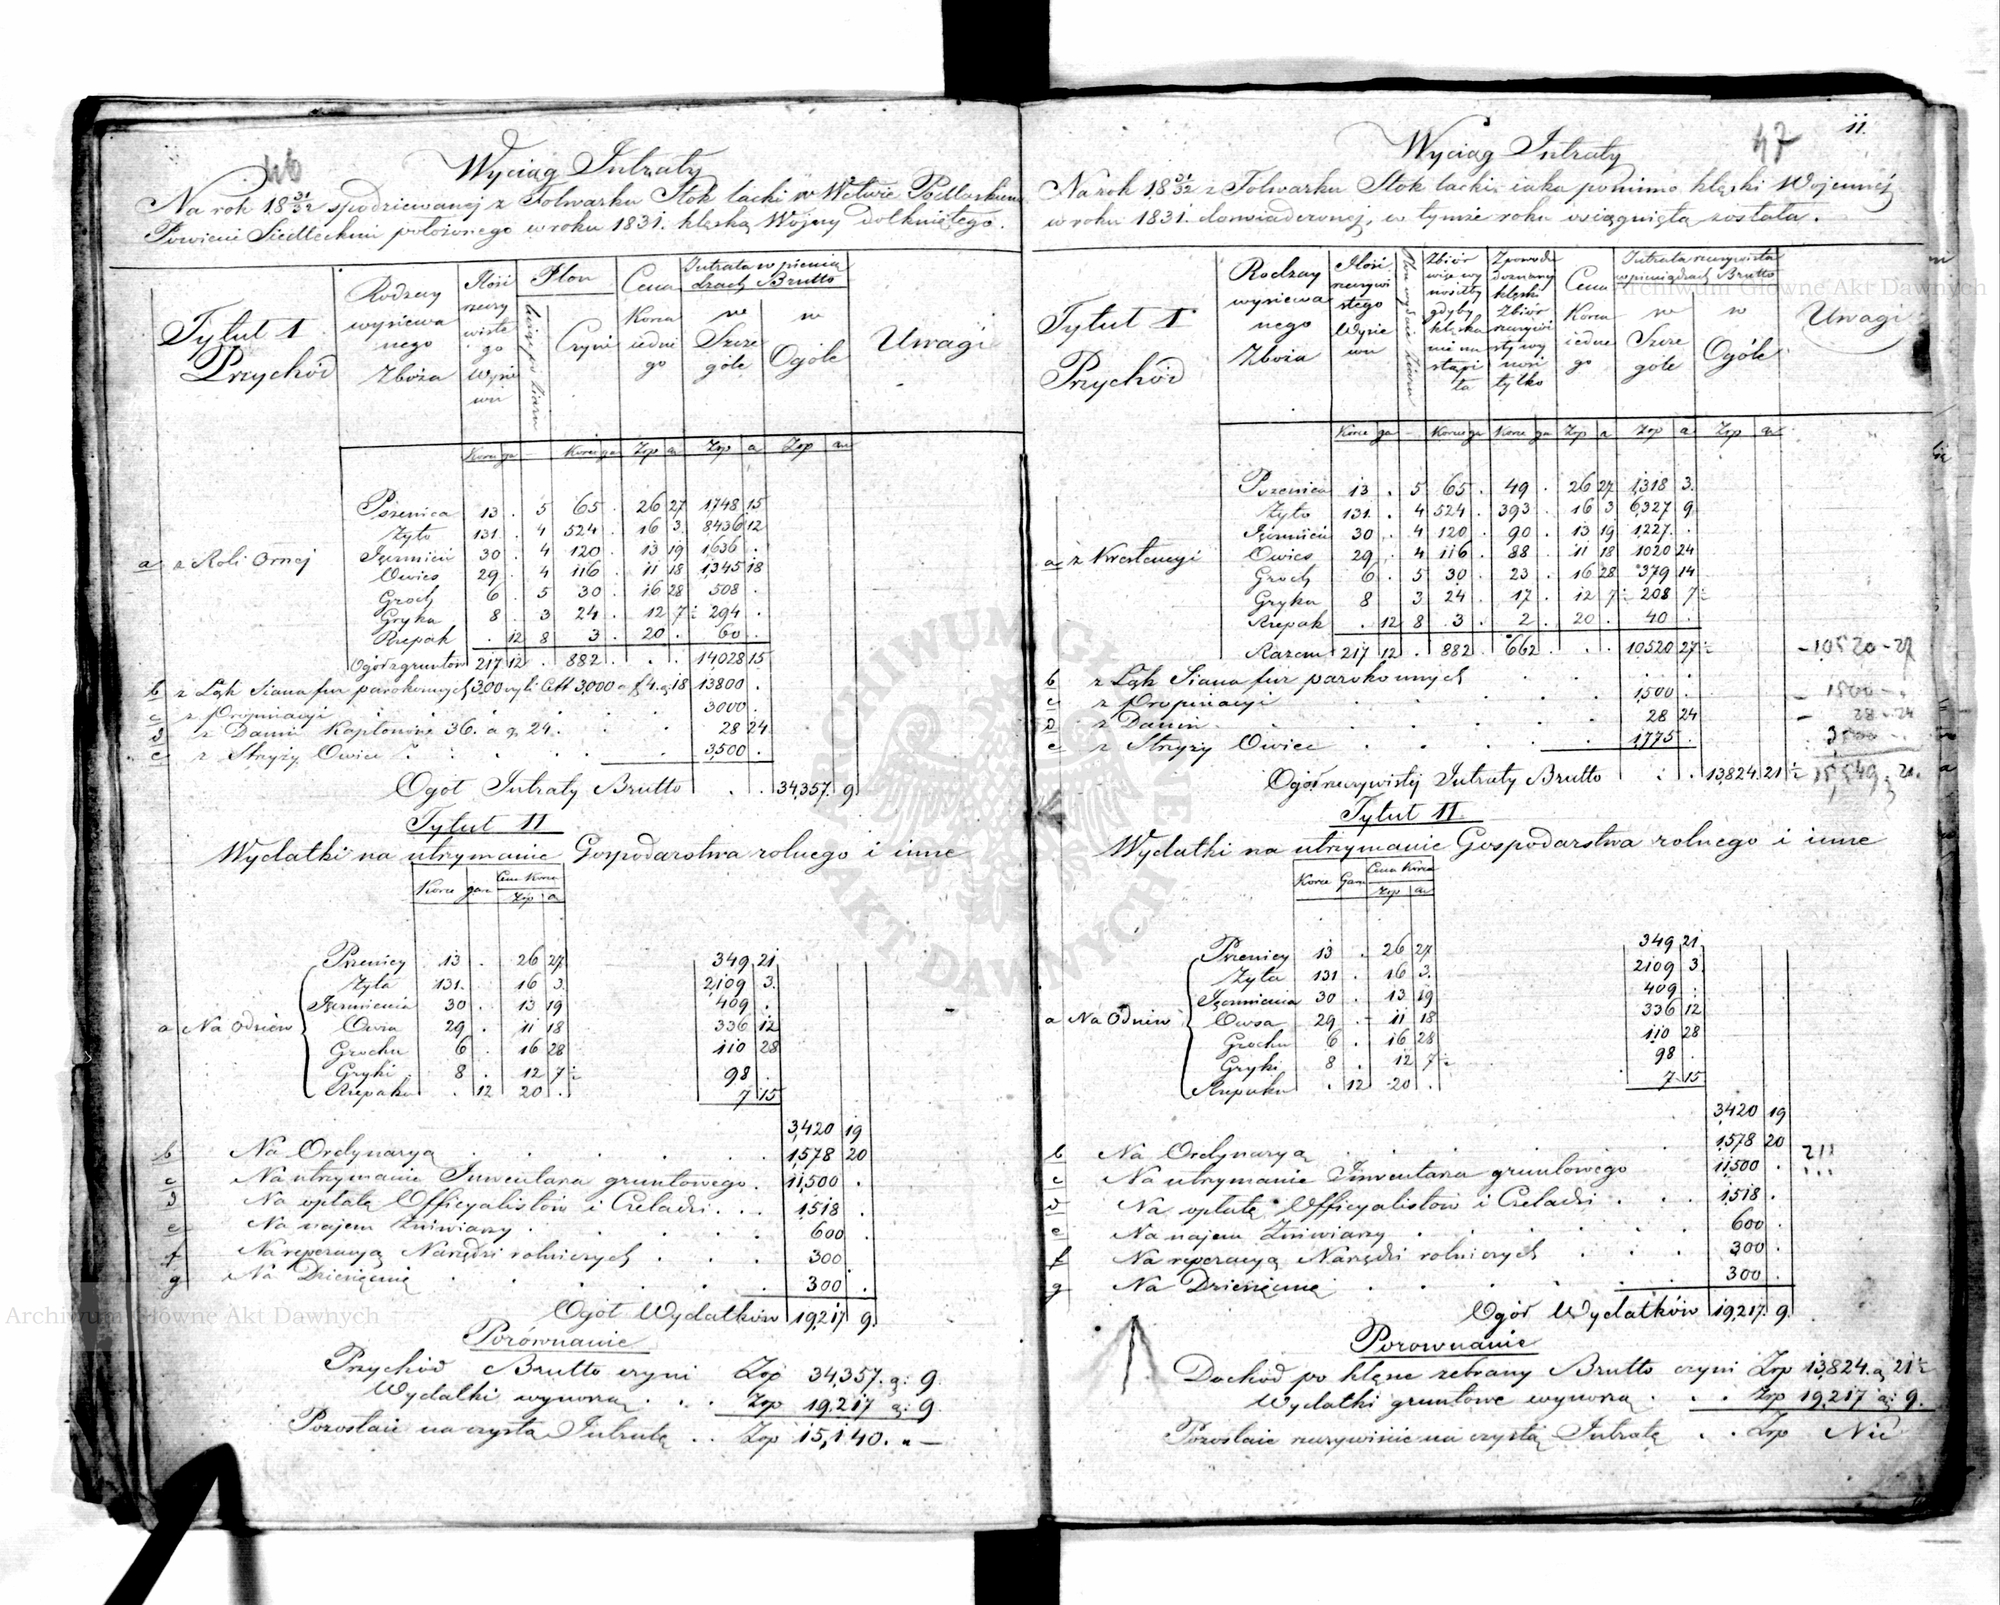 46
Wyciąg Intraty
Na rok 18 31/32 spodziewanej z Folwarku Stok lacki w Wctwie Podlaskiem
Powiecie Siedleckim położonego w roku 1831. klęską Wojny dotkniętego.
Tytuł I
Przychód
Rodzay wysiewanego Zboża
Ilość rzeczywistego Wysiewu
Plon
licząc po ziarn
Czyni
Cena Korca jednego
Intrata w pieniądzach Brutto
w Szczególe
w Ogóle
Uwagi
Korce ga Korce ga Złp a Złp a Złp
a z Roli Ornej
Pszenica 13 . 5 65 . 26 27 1748 15
Żyto 131 . 4 524 . 16 3 8436 12
Jęczmień 30 . 4 120 . 13 19 1636 .
Owies 29 . 4 116 . 11 18 1345 18
Groch 6 . 5 30 . 16 28 508 .
Gryka 8 . 3 24 . 12 7½ 294 .
Rzepak . 12 8 3 . 20 . 60 .
Ogół z gruntów 217 12 . 882 . . . 14028 15
b z Łąk Siana fur parokonnych 300 czyli Cett 3,000 a f 4. g 18 13800 .
c z Propinacyi . . . 3000 .
d z Danin Kapłonów 36. a g. 24. . . 28 24
e z Strzyży Owiec . . . 3,500 .
Ogół Intraty Brutto . . 34,357. 9
Tytuł II
Wydatki na utrzymanie Gospodarstwa rolnego i inne
Korce gar Cena Korca
Złp a
a Na Odsiew
Pszenicy 13 . 26 27 349 21
Żyta 131. 16 3. 2109 3.
Jęczmienia 30 . 13 19 409 .
Owsa 29 . 11 18 336 12
Grochu 6 . 16 28 110 28
Gryki 8 . 12 7½ 98 .
Rzepaku . 12 20 . 7 15
3,420 19
b Na Ordynaryą . . . 1,578 20
c Na utrzymanie Inwentarza gruntowego . 11,500 .
d Na opłatę Officyalistów i Czeladzi . . . 1,518 .
e Na najem Żniwiarzy . . . 600 .
f Na reperacyą Narzędzi rolniczych . . . 300
g Na Dziesięcinę . . . 300 .
Ogół Wydatków 19,217 9.
Porównanie
Przychód Brutto czyni Złp 34,357. g: 9.
Wydatki wynoszą . . . Złp 19,217 g: 9
Pozostaie na czystą Intratę . . Złp 15,140. „ —
47
11.
Wyciąg Intraty
Na rok 18 31/32 z Folwarku Stok lacki, iaka pomimo klęski Wojennej
w roku 1831. doświadczonej, w tymże roku osiągniętą została.
Tytuł I
Przychód
Rodzay wysiewanego Zboża
Ilość rzeczywistego Wysiewu
Zbiór wiele wynosiłby gdyby klęska nie nastąpiła
Z powodu doznaney klęski Zbiór rzeczywisty wynosi tylko
Cena Korca jednego
Intrata rzeczywista w pieniądzach Brutto
w Szczególe
w Ogóle
Uwagi
Korce ga Korce ga Korce ga Złp a Złp a Złp
a z Krestencyi
Pszenica 13 . 5 65 . 49 . 26 27 1,318 3.
Żyto 131. . 4 524 . 393 . 16 3 6,327 9.
Jęczmień 30 . 4 120 . 90 . 13 19 1,227. .
Owies 29 . 4 116 . 88 . 11 18 1020 24
Groch 6 . 5 30 . 23 . 16 28 379 14
Gryka 8 3 24 . 17 . 12 7½ 208 7½
Rzepak . 12 8 3 . 2 . 20 . 40 .
Razem 217 12 . 882 . 662 . . . 10520 27½
– 10520 – 27
b z Łąk Siana fur parokonnych . . .
c z Propinacyi . . . 1,500 .
– 1500 – „
d z Danin . . . 28 24
– 28 – 24
e z Strzyży Owiec . . . 1,775 .
Ogół rzeczywistej Intraty Brutto . . 13,824. 21½
Tytuł II
Wydatki na utrzymanie Gospodarstwa rolnego i inne
Korce Gar Cena Korca
Złp
a Na Odsiew
Pszenicy 13 . 26 27 349 21
Żyta 131 . 16 3. 2109 3.
Jęczmienia 30 . 13 19 409 .
Owsa 29 . 11 18 336 12
Grochu 6 . 16 28 110 28
Gryki 8 . 12 7½ 98 .
Rzepaku . 12 20 . 7 15
3420 19
b Na Ordynaryą . . . 1,578 20
c Na utrzymanie Inwentarza gruntowego 11,500 .
d Na opłatę Officyalistów i Czeladzi . . . 1,518 .
e Na najem Żniwiarzy . . . 600 .
f Na reperacyą Narzędzi rolniczych . . . 300 .
g Na Dziesięcinę . . . 300 .
Ogół Wydatków 19,217. 9.
Porownanie
Dochód po klęsce zebrany Brutto czyni Złp 13,824. g 21½
Wydatki gruntowe wynoszą . . . Złp 19,217 g: 9.
Pozostaie rzeczywiście na czystą Intratę . . Złp Nic
Archiwum Główne Akt Dawnych
Archiwum Główne Akt Dawnych
ARCHIWUM GŁÓWNE AKT DAWNYCH